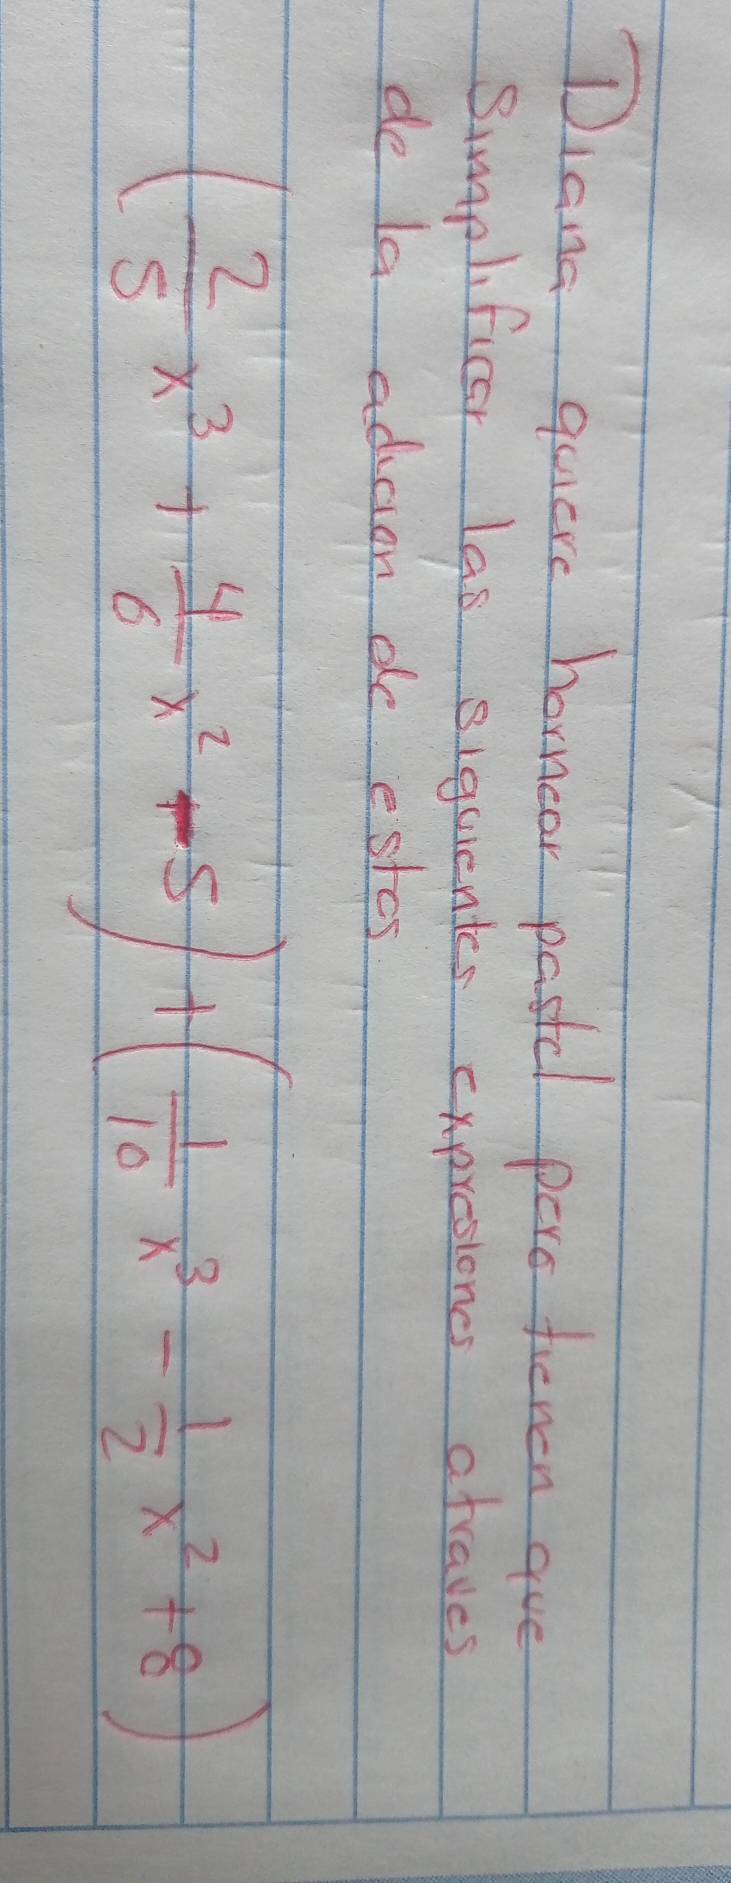 Diana quiere hornear pastel pero tienen que
Simplificar las siguientes expresiones atraves
de la adicion de estos
(2/5 x³ + 4/6 x² - 5) + (1/10 x³ - 1/2 x² + 8)